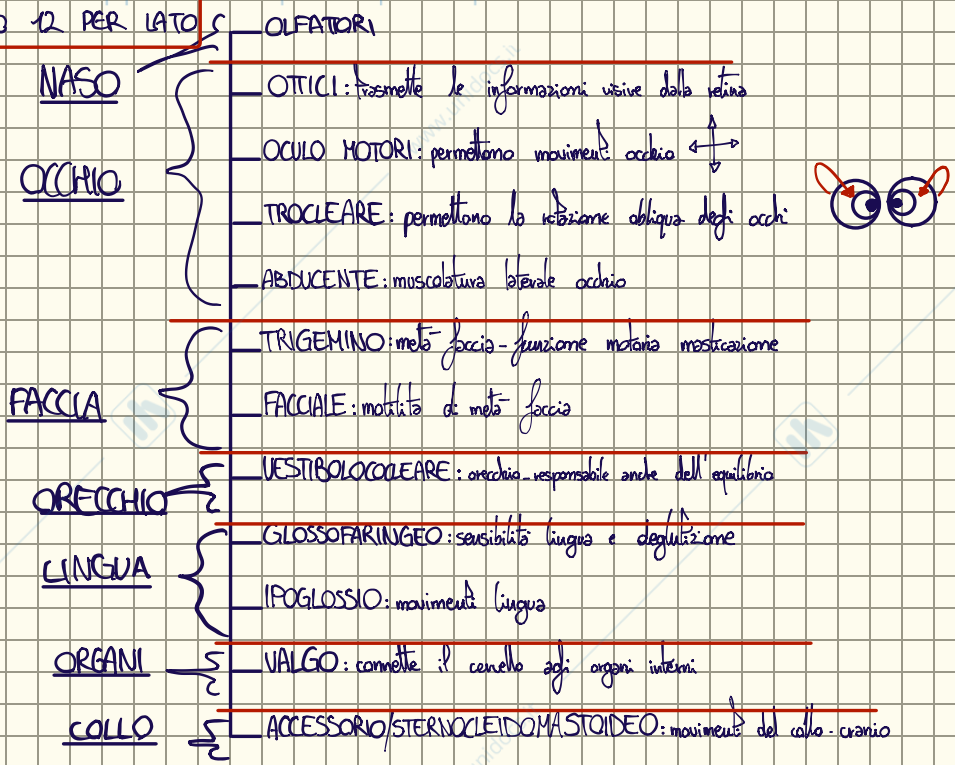 12 PER LATO
OLFATORI
NASO
OTTICI: trasmette le informazioni visive dalla retina
OCULO MOTORI: permettono movimenti occhio
OCCHIO
TROCLEARE: permettono la rotazione obliqua degli occhi
ABDUCENTE: muscolatura laterale occhio
TRIGEMINO: metà faccia - funzione motoria masticazione
FACCIA
FACCIALE: motilità di metà faccia
VESTIBOLOCOCLEARE: orecchio - responsabile anche dell'equilibrio
ORECCHIO
GLOSSOFARINGEO: sensibilità lingua e deglutizione
LINGUA
IPOGLOSSIO: movimenti lingua
ORGANI
VALGO: connette il cervello agli organi interni
COLLO
ACCESSORIO/STERNOCLEIDOMASTOIDEO: movimenti del collo - cranio